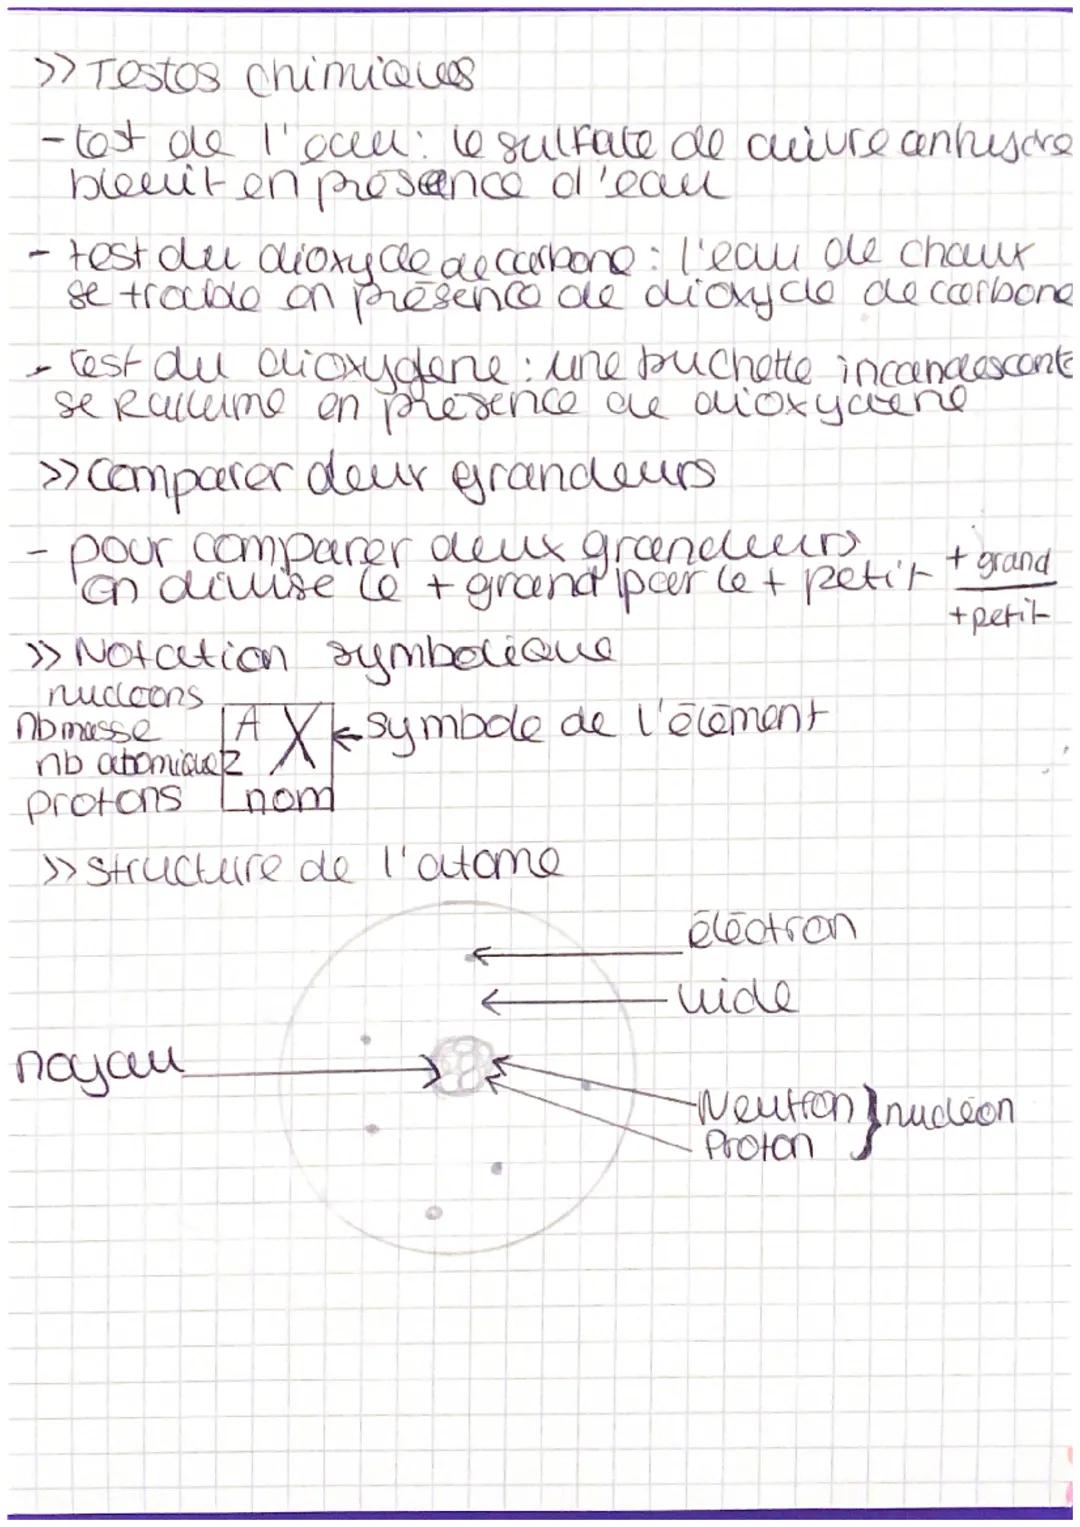 >> Testes chimiques
- test de l'eau : le sulfate de cuivre anhydre
bleuit en présence d'eau
- test du dioxyde de carbone : l'eau de chaux
se trouble en présence de dioxyde de carbone
- test du dioxygène : une buchette incandescente
se rallume en présence de dioxygène
>> comparer deux grandeurs
- pour comparer deux grandeurs
on divise le + grand par le + petit
+ grand
+ petit
>> Notation symbolique
nucléons
nb masse
A X ← symbole de l'élément
nb atomique Z
protons
nom
>> structure de l'atome
électron
vide
noyau
Neutron } nucléon
Proton